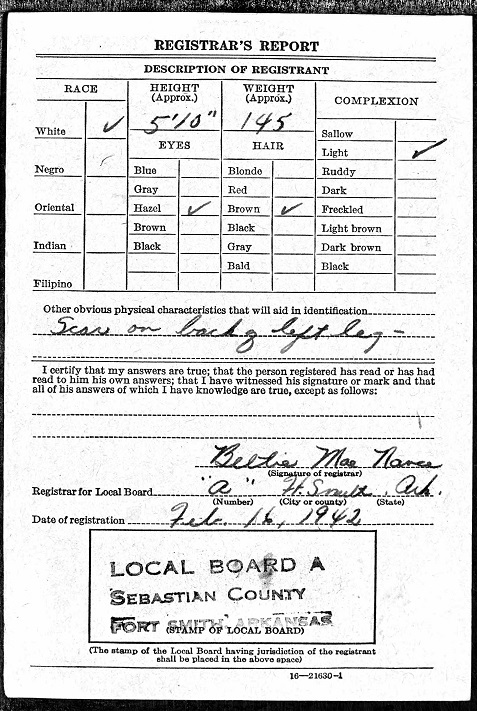 REGISTRAR'S REPORT
DESCRIPTION OF REGISTRANT
RACE
HEIGHT
(Approx.)
WEIGHT
(Approx.)
COMPLEXION
5'10"
145
White ✓
EYES
HAIR
Sallow
Light ✓
Negro
Blue
Blonde
Ruddy
Gray
Red
Dark
Oriental
Hazel ✓
Brown ✓
Freckled
Brown
Black
Light brown
Indian
Black
Gray
Dark brown
Bald
Black
Filipino
Other obvious physical characteristics that will aid in identification
Scar on back of left leg -
I certify that my answers are true; that the person registered has read or has had
read to him his own answers; that I have witnessed his signature or mark and that
all of his answers of which I have knowledge are true, except as follows:
Mae
(Signature of registrar)
Registrar for Local Board "A" Ft. Smith, Ark.
(Number) (City or county) (State)
Date of registration Feb. 16, 1942
LOCAL BOARD A
SEBASTIAN COUNTY
FORT SMITH ARKANSAS
(STAMP OF LOCAL BOARD)
(The stamp of the Local Board having jurisdiction of the registrant
shall be placed in the above space)
16—21630-1